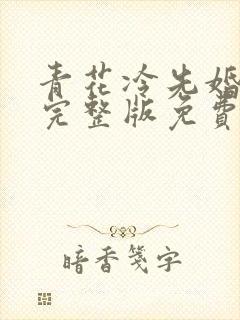 青花冷先婚
完整版免費
暗香箋字